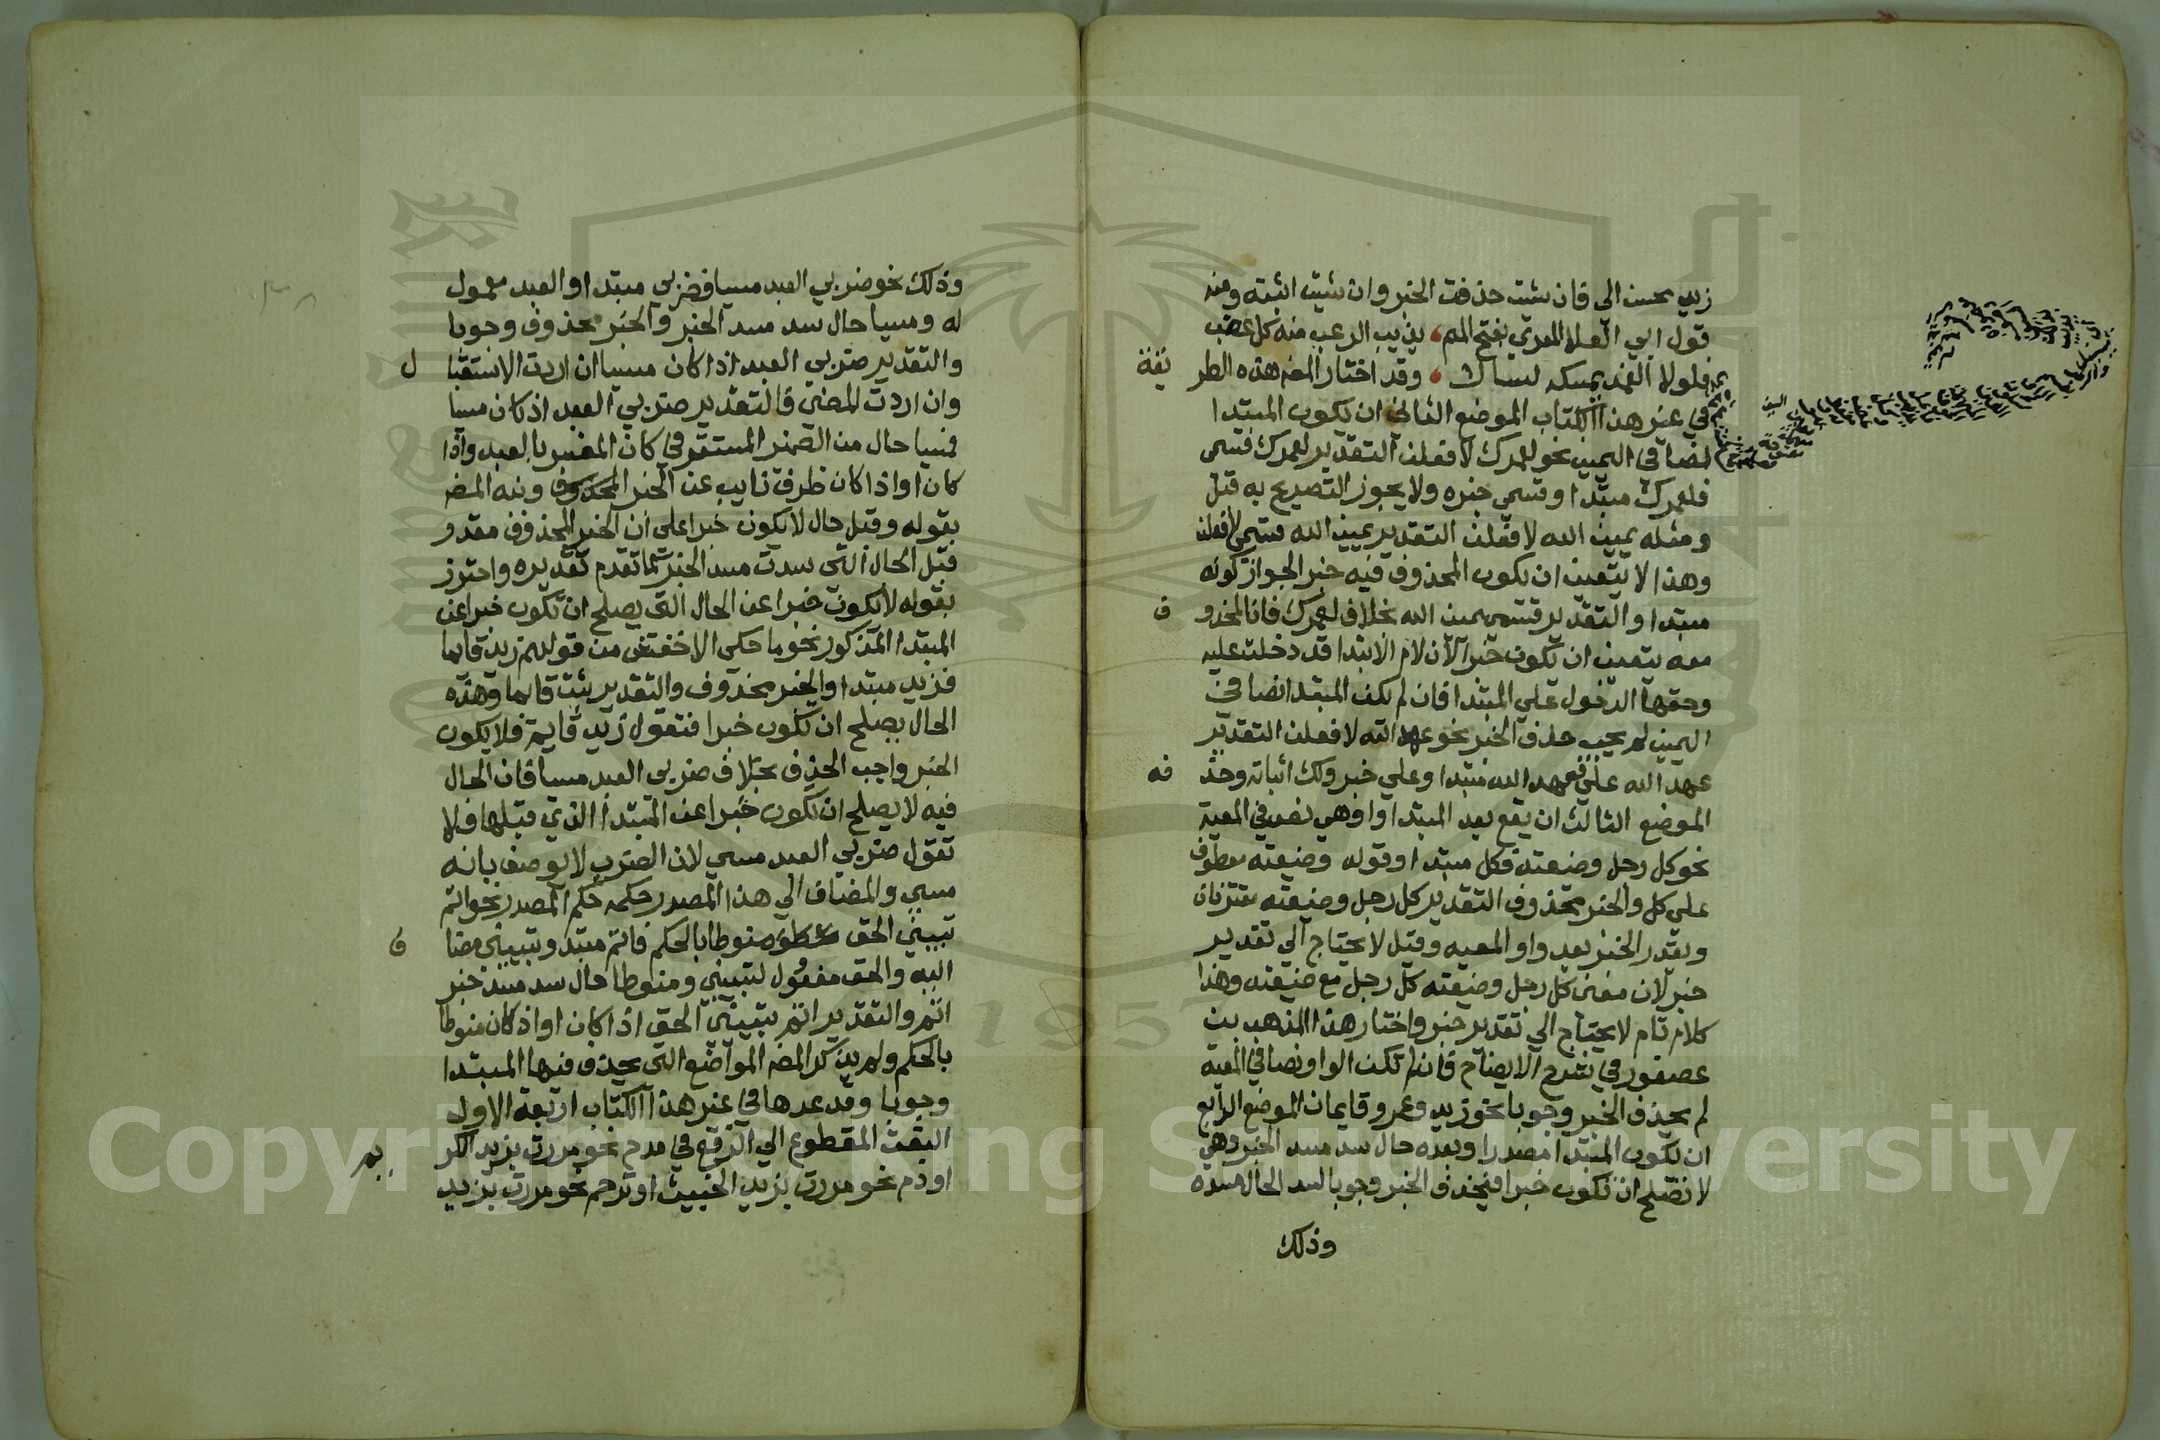 زيد محسن الي فان شئت حذفت الخبر وان شئت اثبته ومنه
قول ابي العلا المعري بفتح الميم يذيب الرعب منه كل عضب
فلولا الغمد يمسكه لسالا وقد اختار المضه هذه الطر يقة
في غير هذا الكتاب الموضع الثاني ان يكون المبتدا
نصا في اليمين نحو لعمرك لافعلن التقدير لعمرك قسمي
فلعمرك مبتدا وقسمي خبره ولا يجوز التصريح به قيل
ومثله يمين الله لافعلن التقدير يمين الله قسمي لافعلن
وهذا لا يتعين ان يكون المحذوف فيه خبرا لجواز كونه
مبتدا والتقدير قسمي يمين الله بخلاف لعمرك فان المحذو ف
معه يتعين ان يكون خبرا لان لام الابتدا قد دخلت عليه
وحقها الدخول علي المبتدا فان لم يكن المبتدا نصا في
اليمين لم يجب حذف الخبر نحو عهد الله لافعلن التقدير
عهد الله علي فعهد الله مبتدا وعلي خبر ولك اثباته وحذ فه
الموضع الثالث ان يقع بعد المبتدا واو هي نص في المعية
نحو كل رجل وضيعته فكل مبتدا وقوله وضيعته معطوف
علي كل والخبر محذوف التقدير كل رجل وضيعته مقترنان
ويقدر الخبر بعد واو المعيه وقيل لا يحتاج الي تقدير
خبر لان معنى كل رجل وضيعته كل رجل مع ضيعته وهذا
كلام تام لا يحتاج الي تقدير خبر واختار هذا المذهب بن
عصفور في شرح الايضاح فان لم تكن الواو نصا في المعية
لم يحذف الخبر وجوبا نحو زيد وعمرو قايمان الموضع الرابع
ان يكون المبتدا مصدرا وبعده حال سد مسد الخبر وهي
لا تصلح ان تكون خبرا فيحذف الخبر وجوبا لسد الحال مسده
وذلك
وذلك نحو ضربي العبد مسيا فضربي مبتدا والعبد معمول
له ومسيا حال سد مسد الخبر والخبر محذوف وجوبا
والتقدير ضربي العبد اذا كان مسيا ان اردت الاستقبا ل
وان اردت المضي فالتقدير ضربي العبد اذ كان مسيا
فمسيا حال من الضمير المستتر في كان المفسر بالعبد واذا
كان او اذ كان ظرف نايب عن الخبر المحذوف ونبه المضه
بقوله وقبل حال لا يكون خبرا علي ان الخبر المحذوف مقدر
قبل الحال التي سدت مسد الخبر كما تقدم تقديره واحترز
بقوله لا يكون خبرا عن الحال التي يصلح ان تكون خبرا عن
المبتدا المذكور نحو ما حكى الاخفش من قولهم زيد قايما
فزيد مبتدا والخبر محذوف والتقدير ثبت قايما وهذه
الحال يصلح ان تكون خبرا فتقول زيد قايم فلا يكون
الخبر واجب الحذف بخلاف ضربي العبد مسيا فان الحال
فيه لا يصلح ان تكون خبرا عن المبتدا الذي قبلها فلا
تقول ضربي العبد مسي لان الضرب لا يوصف بانه
مسي والمضاف الي هذا المصدر حكمه حكم المصدر نحو اتم
تبييني الحق منوطا بالحكم فاتم مبتد وتبييني مضا ف
اليه والحق مفعول لتبييني ومنوطا حال سد مسد خبر
اتم والتقدير اتم تبييني الحق اذا كان او اذ كان منوطا
بالحكم ولم يذكر المضه المواضع التي يحذف فيها المبتدا
وجوبا وقد عدها في غير هذا الكتاب اربعة الاول
النعت المقطوع الي الرفع في مدح نحو مررت بزيد الكر يم
او ذم نحو مررت بزيد الخبيث او ترحم نحو مررت بزيد
1957
Copyright © King Saud University